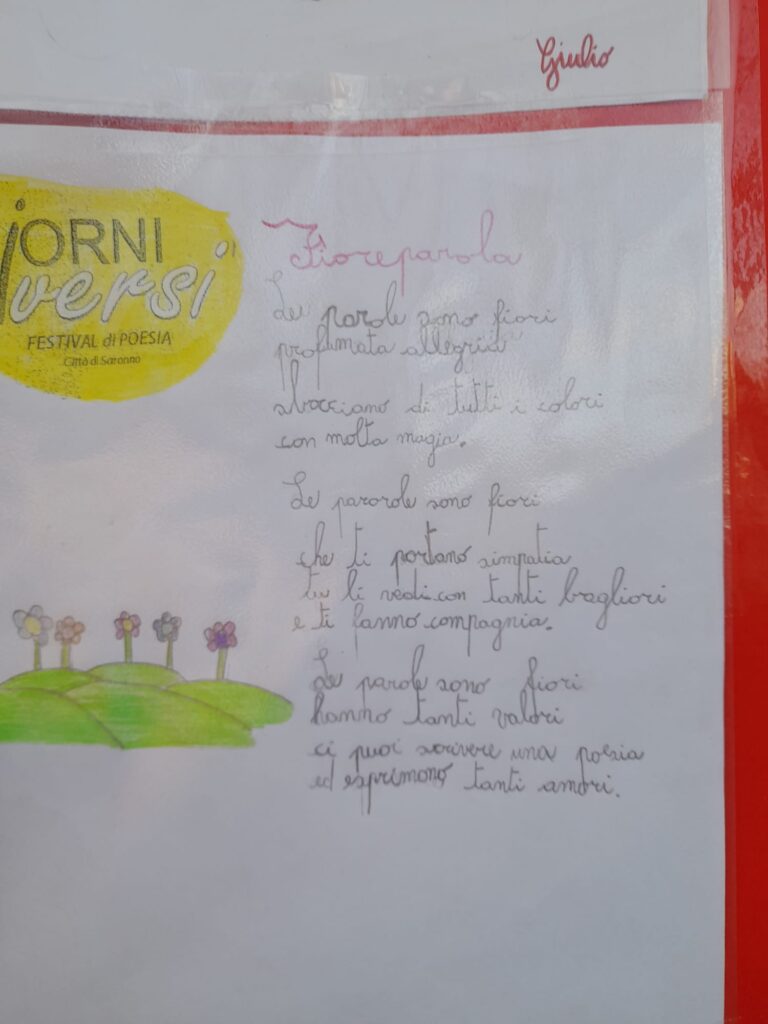 Giulio
iORNI
versi
FESTIVAL di POESIA
Città di Saronno
Fioreparola
Le parole sono fiori
profumata allegria
sbocciano di tutti i colori
con molta magia.
Le parorole sono fiori
che ti portano simpatia
tu li vedi con tanti bagliori
e ti fanno compagnia.
Le parole sono fiori
hanno tanti valori
ci puoi scrivere una poesia
ed esprimono tanti amori.